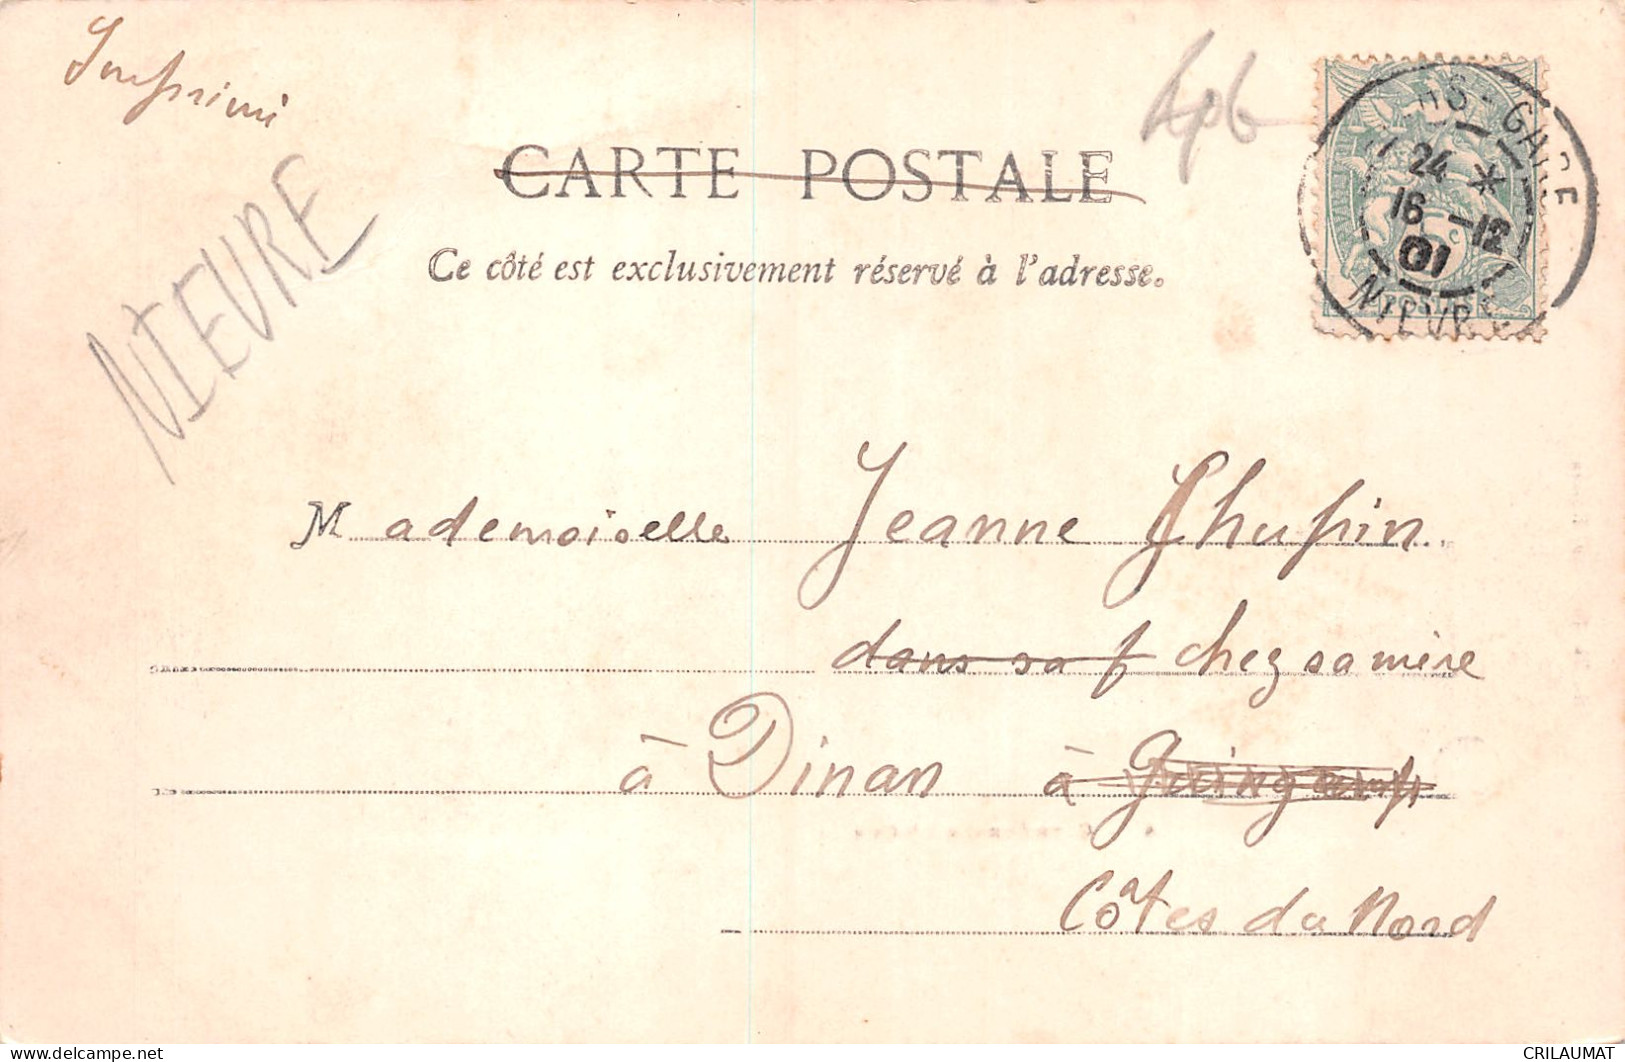 Imprimé
CARTE POSTALE
Ce côté est exclusivement réservé à l'adresse.
NIEVRE
RS - GARE
24 *
16 -12
01
NIEVRE
Mademoiselle Jeanne Chupin
dans sa f chez sa mère
à Dinan à Guingamp
Côtes du Nord
CRILAUMAT